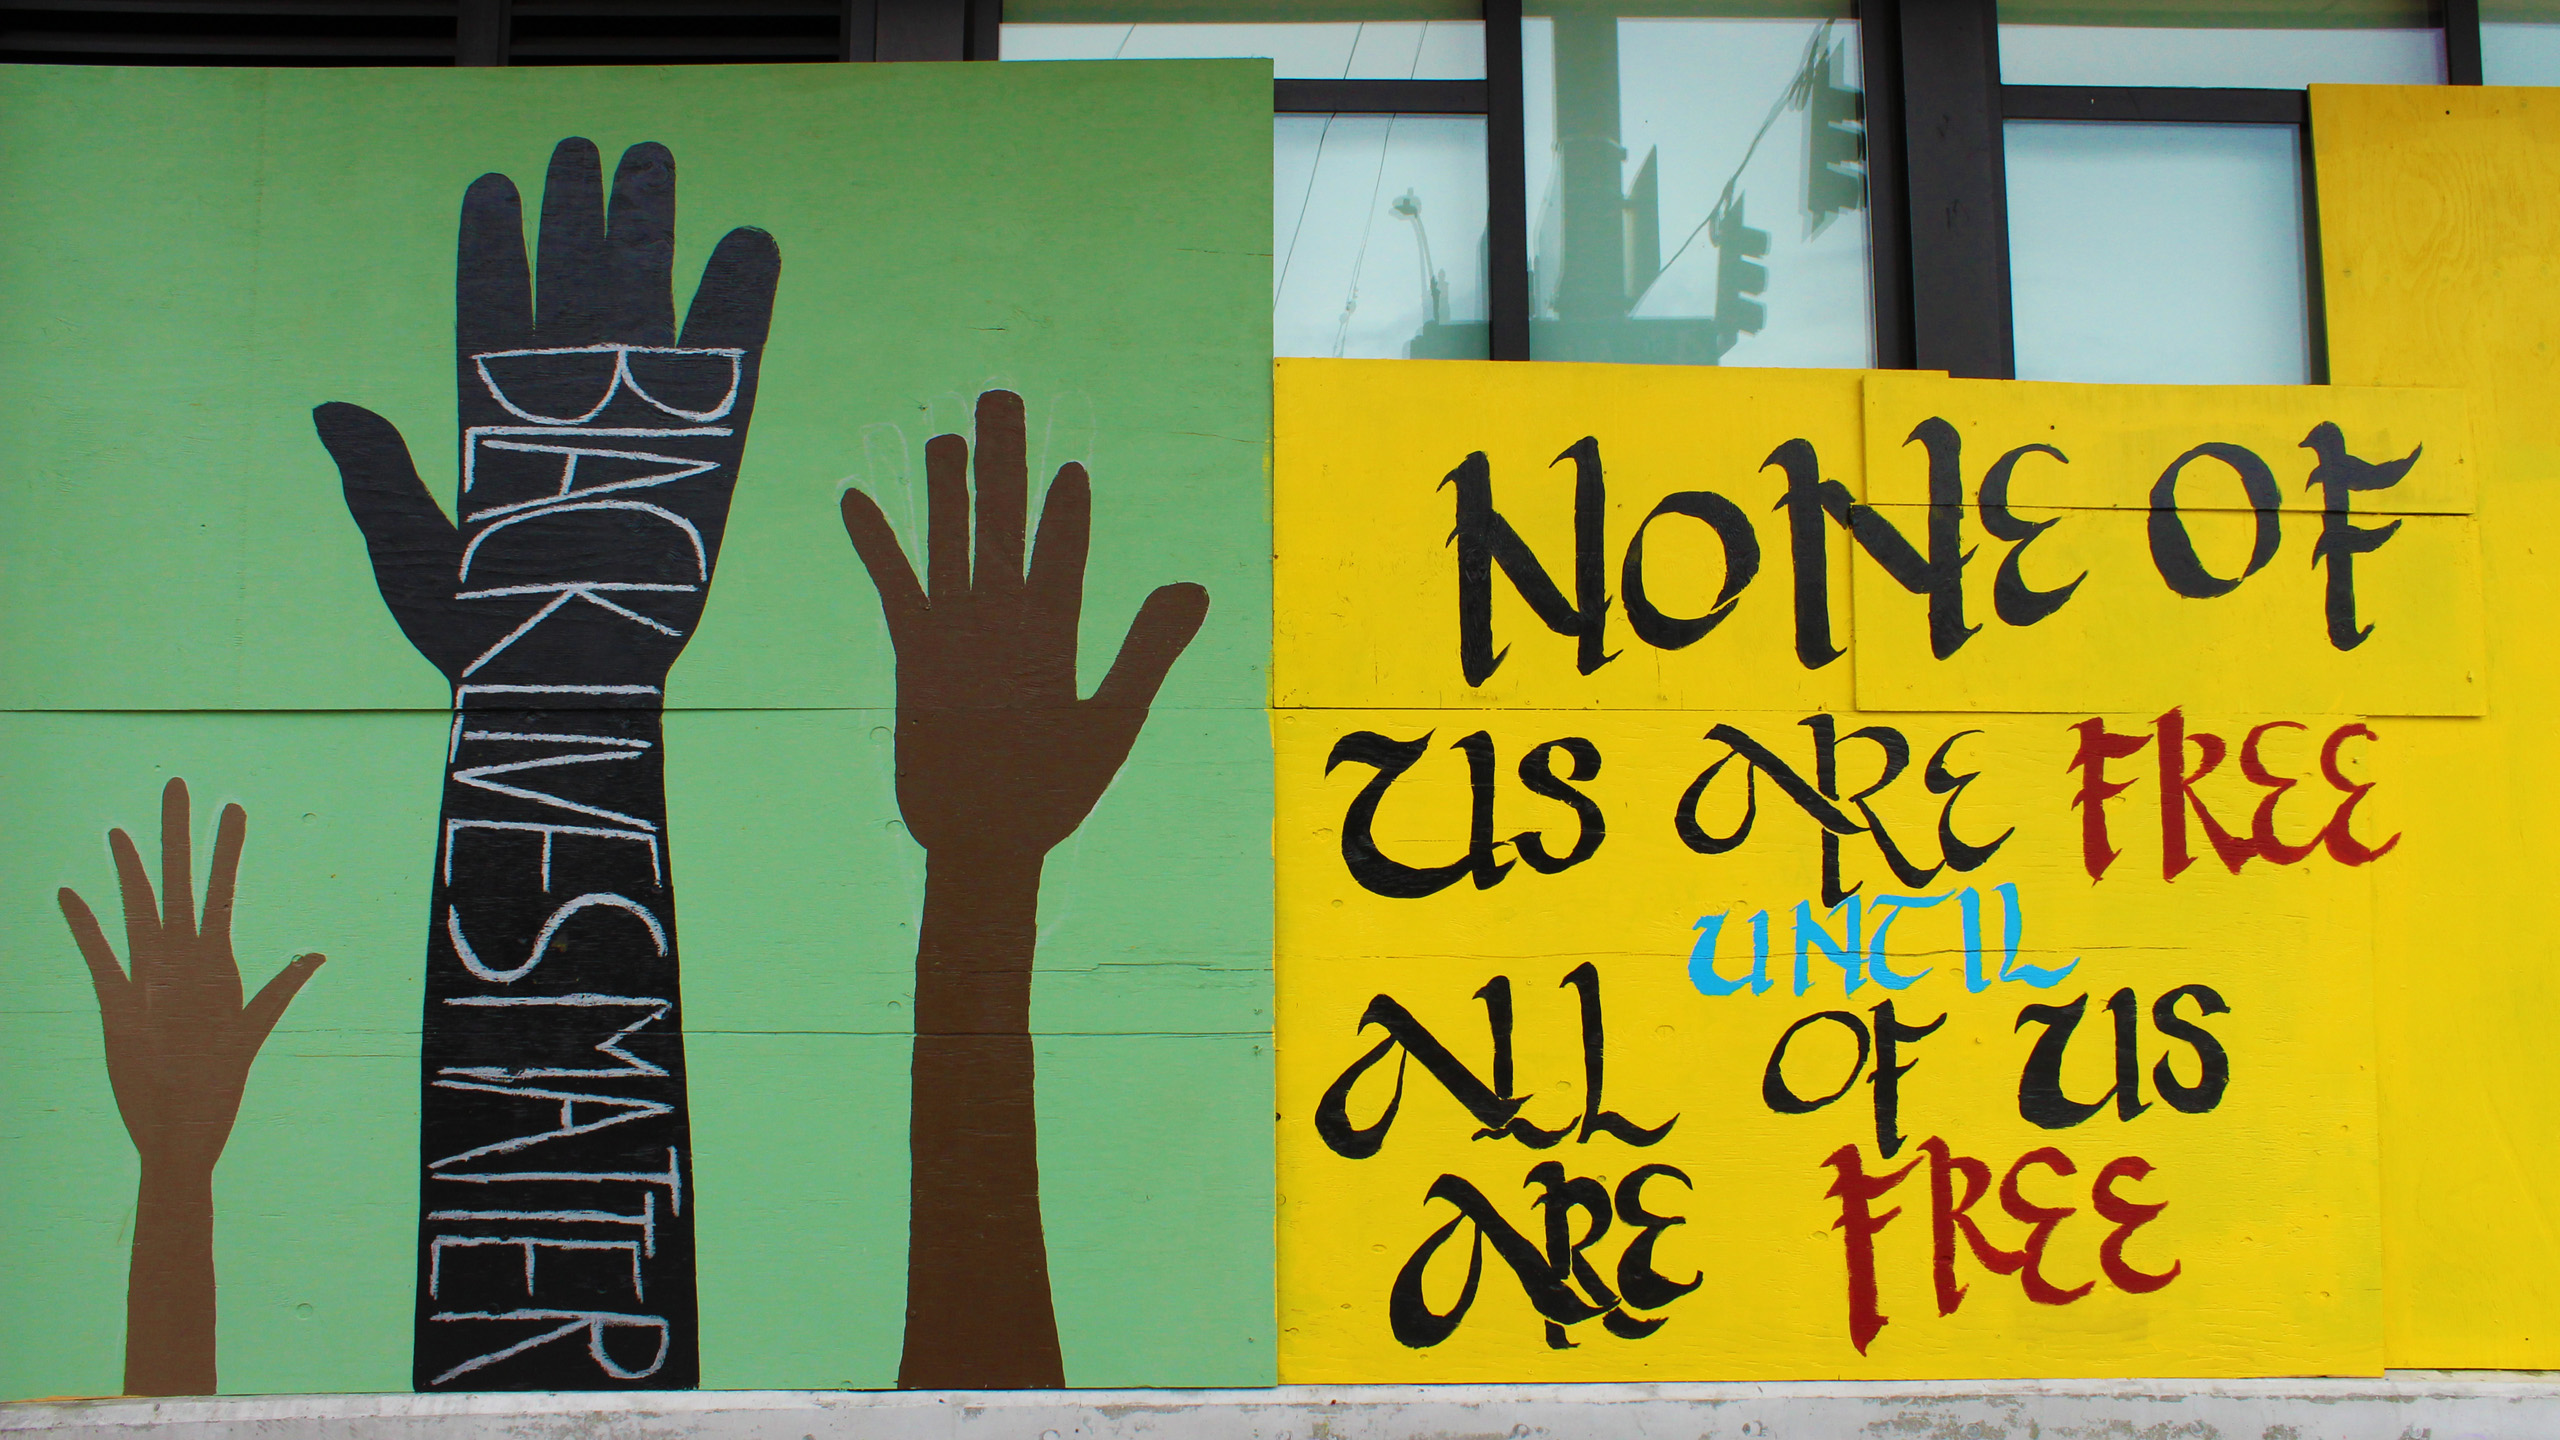 BLACK LIVES MATTER
NONE OF
US ARE FREE
UNTIL
ALL OF US
ARE FREE